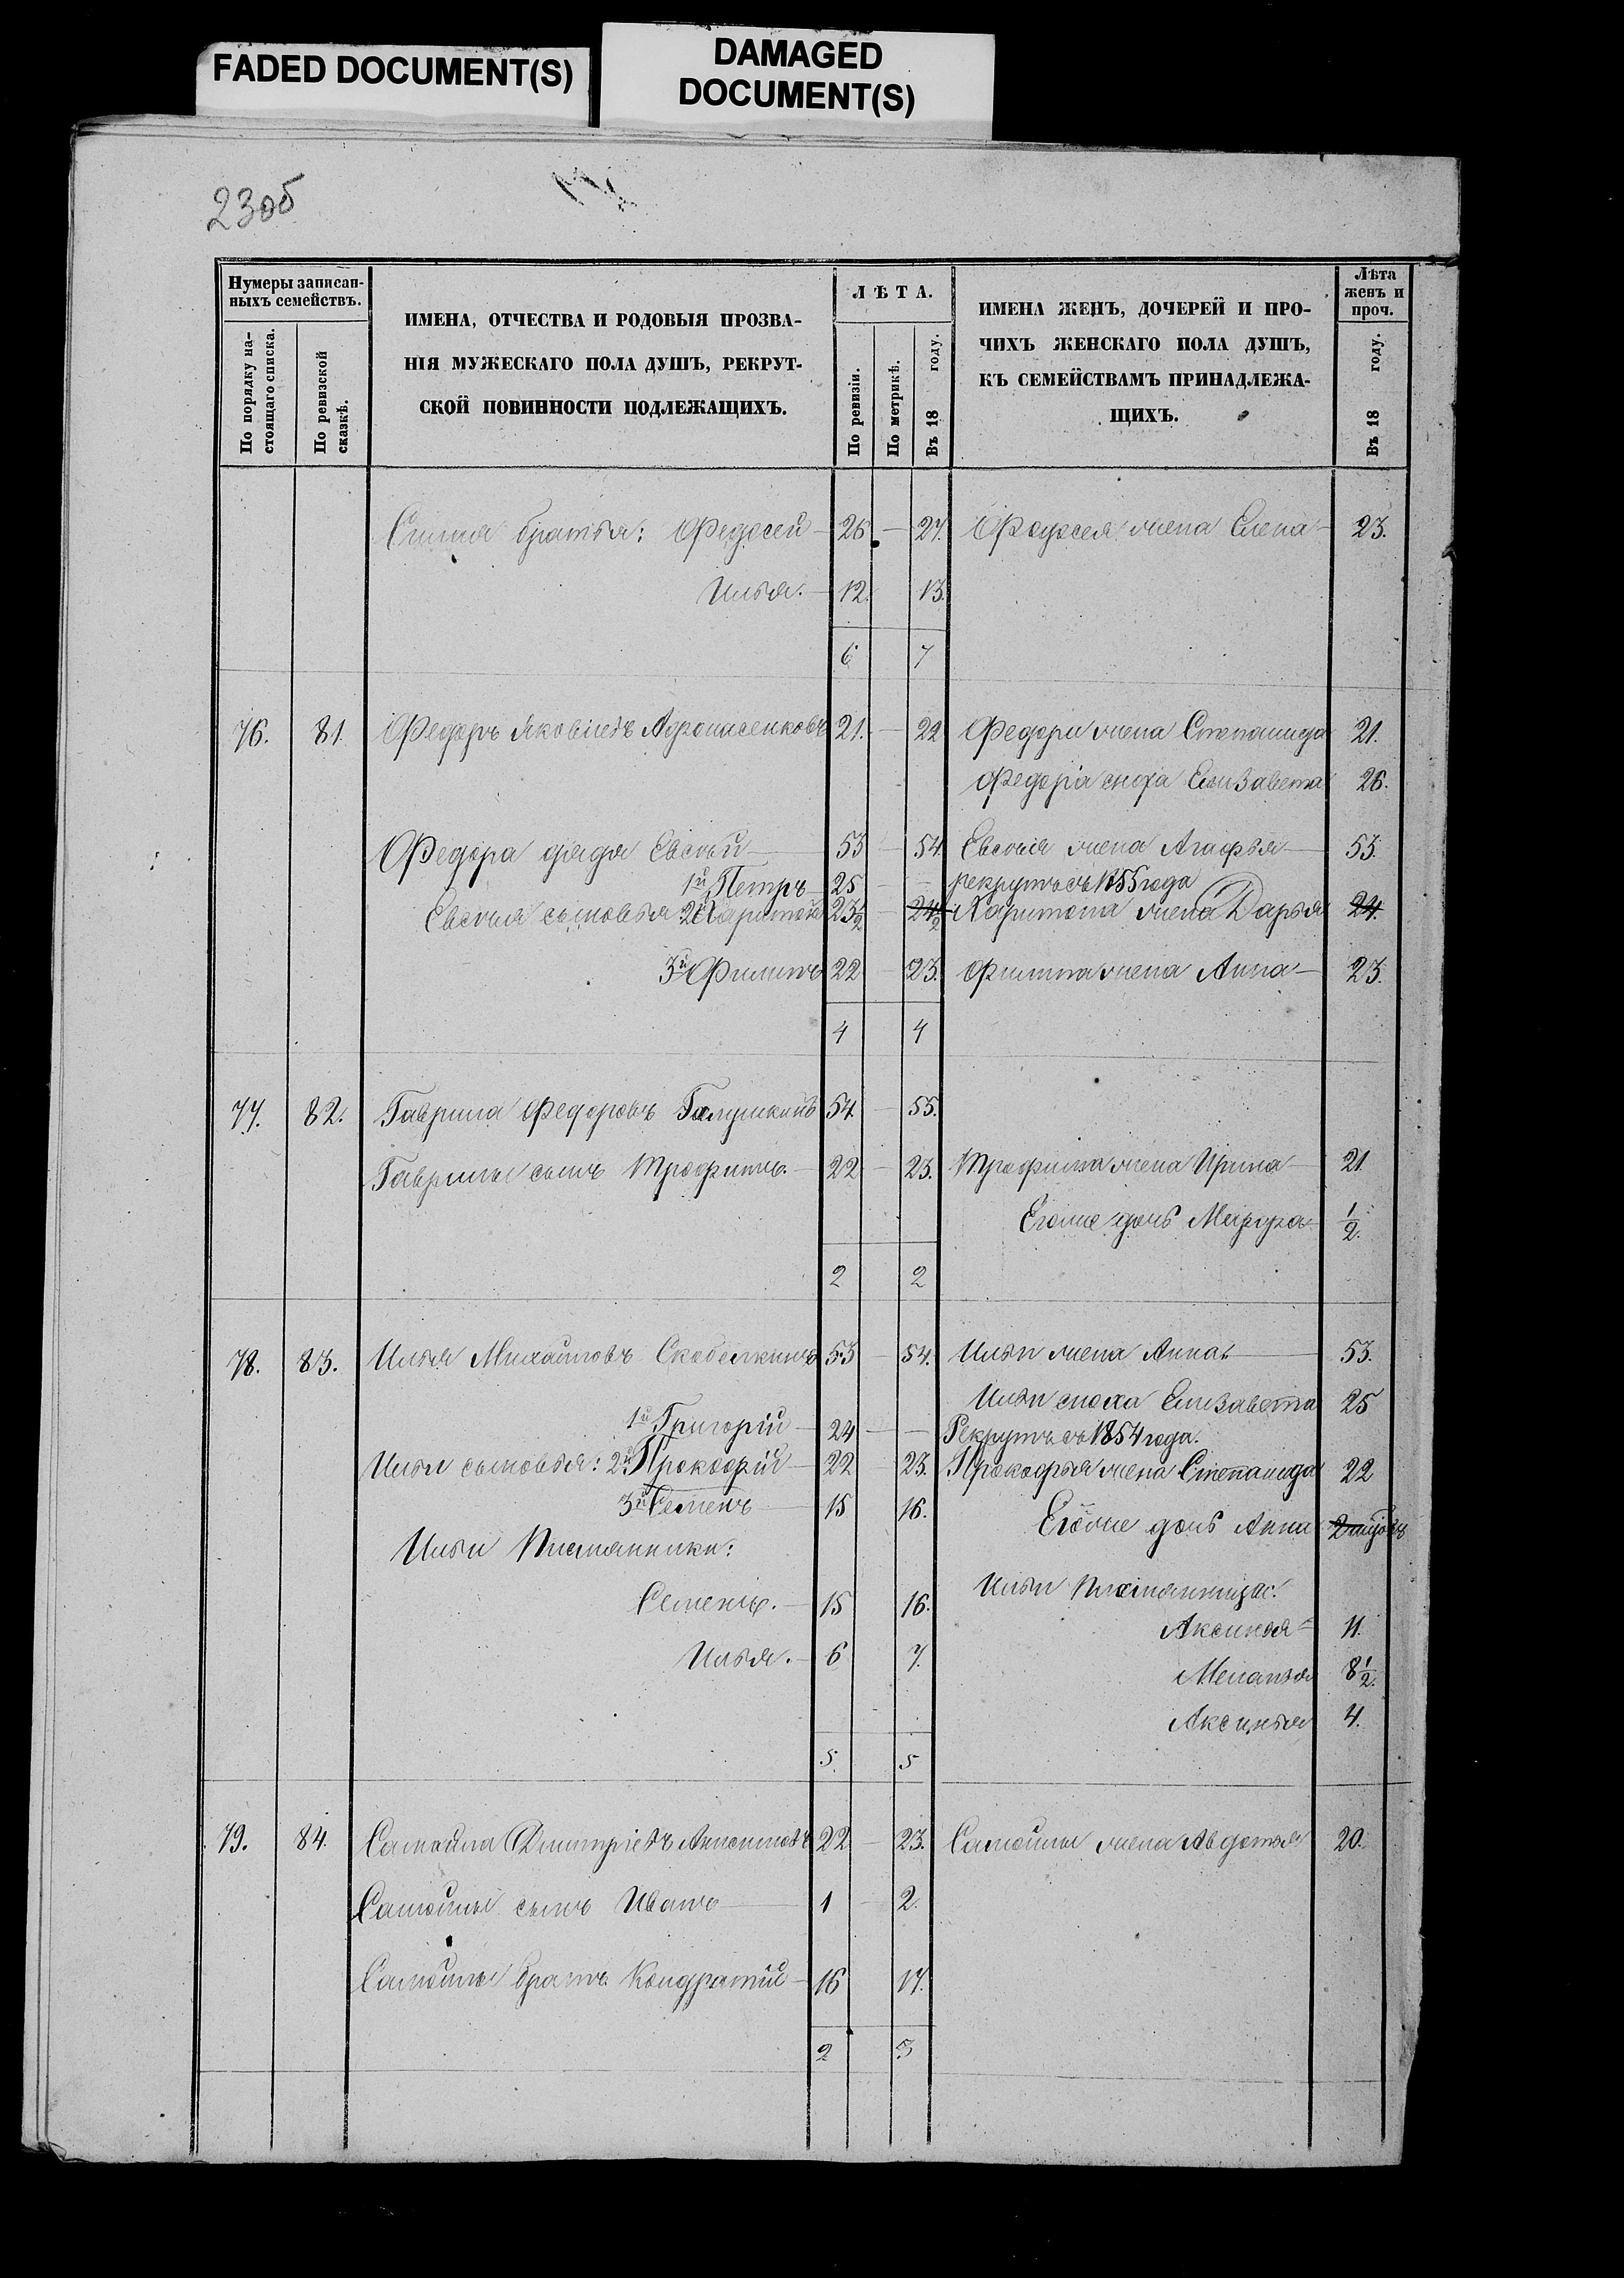 FADED DOCUMENT(S)
DAMAGED
DOCUMENT(S)
23об
Нумеры записан-
ныхъ семействъ.
По порядку на-
стоящаго списка.
По ревизской
сказкѣ.
ИМЕНА, ОТЧЕСТВА И РОДОВЫЯ ПРОЗВА-
НІЯ МУЖЕСКАГО ПОЛА ДУШЪ, РЕКРУТ-
СКОЙ ПОВИННОСТИ ПОДЛЕЖАЩИХЪ.
ЛѢТА.
По ревизіи.
По метрикѣ.
Въ 18 году.
ИМЕНА ЖЕНЪ, ДОЧЕРЕЙ И ПРО-
ЧИХЪ ЖЕНСКАГО ПОЛА ДУШЪ,
КЪ СЕМЕЙСТВАМЪ ПРИНАДЛЕЖА-
ЩИХЪ.
Лѣта
женъ и
проч.
Въ 18 году.
братья: Федосей 26 27. Федосея жена Елена 23.
Илья. 12. 13.
6 7
76. 81 Федоръ Яковлевъ 21. 22 Федора жена Степанида 21.
Федора сноха Елизавета 26.
Федора дядя Евсѣй 53 54. Евсѣя жена Агафья 53.
1й Петръ 25 рекрутъ съ 1855 года
Евсѣя сыновья 2й Харитонъ 23½ 24½ Харитона жена Дарья 24.
3й Филипъ 22 23. Филипа жена Анна 23.
4 4
77. 82. Гаврила Федоровъ Галушкинъ 54. 55.
Гаврилы сынъ Трофимъ. 22 23. Трофима жена Ирина 21
Егоже дочь Марфа ½.
2 2
78. 83. Илья Михайловъ Скобелкинъ 53 54. Ильи жена Анна 53.
Ильи сноха Елизавета 25
1й Григорій 24 Рекрутъ съ 1854 года.
Ильи сыновья: 2й Прокофій 22 23. Прокофья жена Степанида 22
3й Семенъ 15 16. Егоже дочь Анна
Ильи Племянники:
Семенъ. 15 16. Ильи племянницы:
Аксинья 11.
Илья. 6 7. Меланья 8½.
Аксинья 4.
5. 5
79. 84. Самойла Дмитріевъ 22 23. Самойлы жена Авдотья 20.
Самойлы сынъ Иванъ 1 2.
Самойлы братъ Кондратій 16 17.
2 3